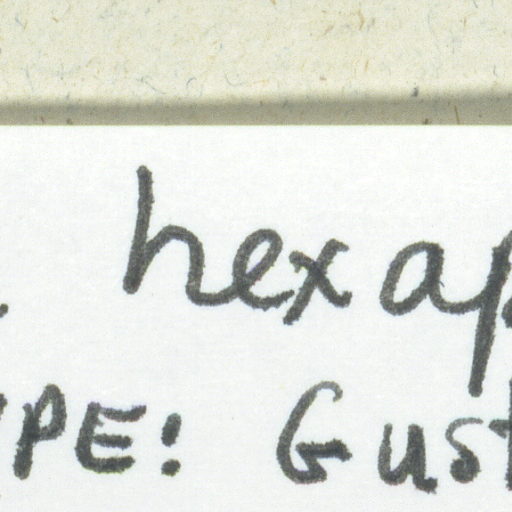 hexap
YPE: Gust